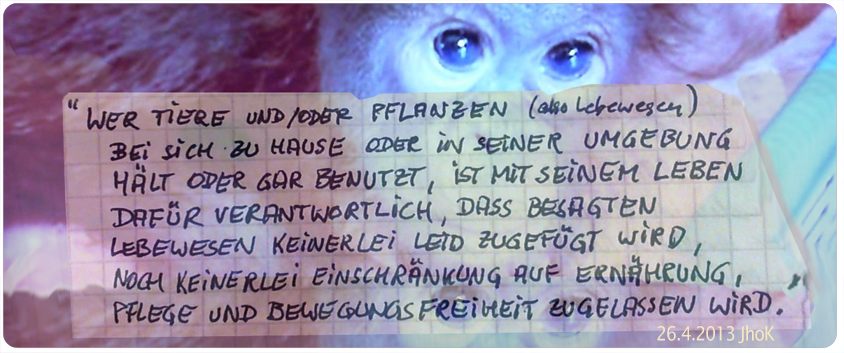 "WER TIERE UND/ODER PFLANZEN (also Lebewesen)
BEI SICH ZU HAUSE ODER IN SEINER UMGEBUNG
HÄLT ODER GAR BENUTZT, IST MIT SEINEM LEBEN
DAFÜR VERANTWORTLICH, DASS BESAGTEN
LEBEWESEN KEINERLEI LEID ZUGEFÜGT WIRD,
NOCH KEINERLEI EINSCHRÄNKUNG AUF ERNÄHRUNG,
PFLEGE UND BEWEGUNGSFREIHEIT ZUGELASSEN WIRD."
26.4.2013 JhoK